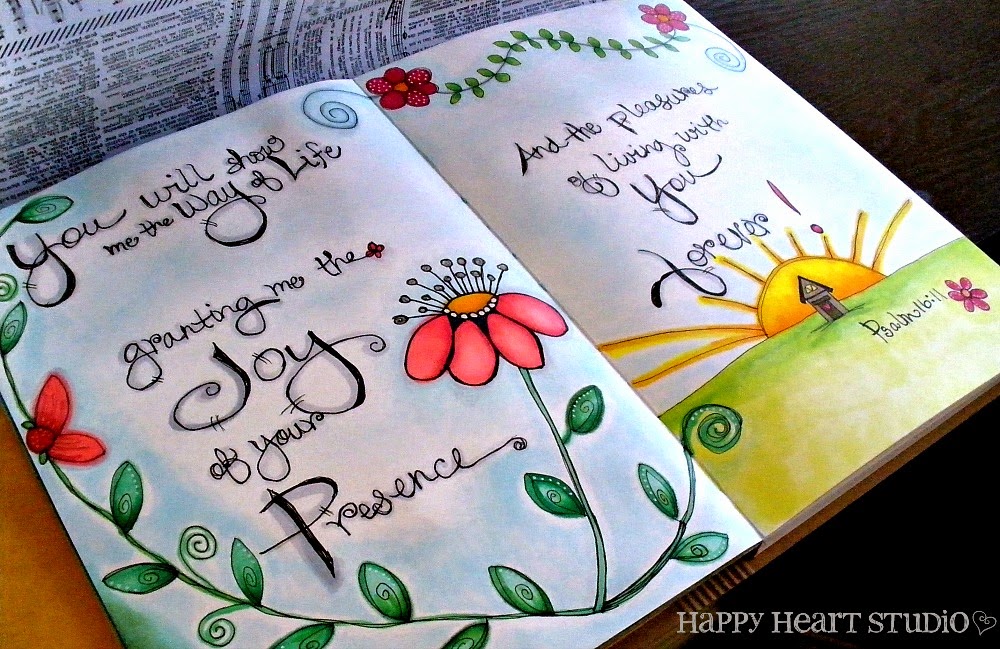 You will show
me the Way of Life
granting me the
Joy
of your
Presence
And the pleasures
of living with
You
forever!
Psalm 16:11
HAPPY HEART STUDIO